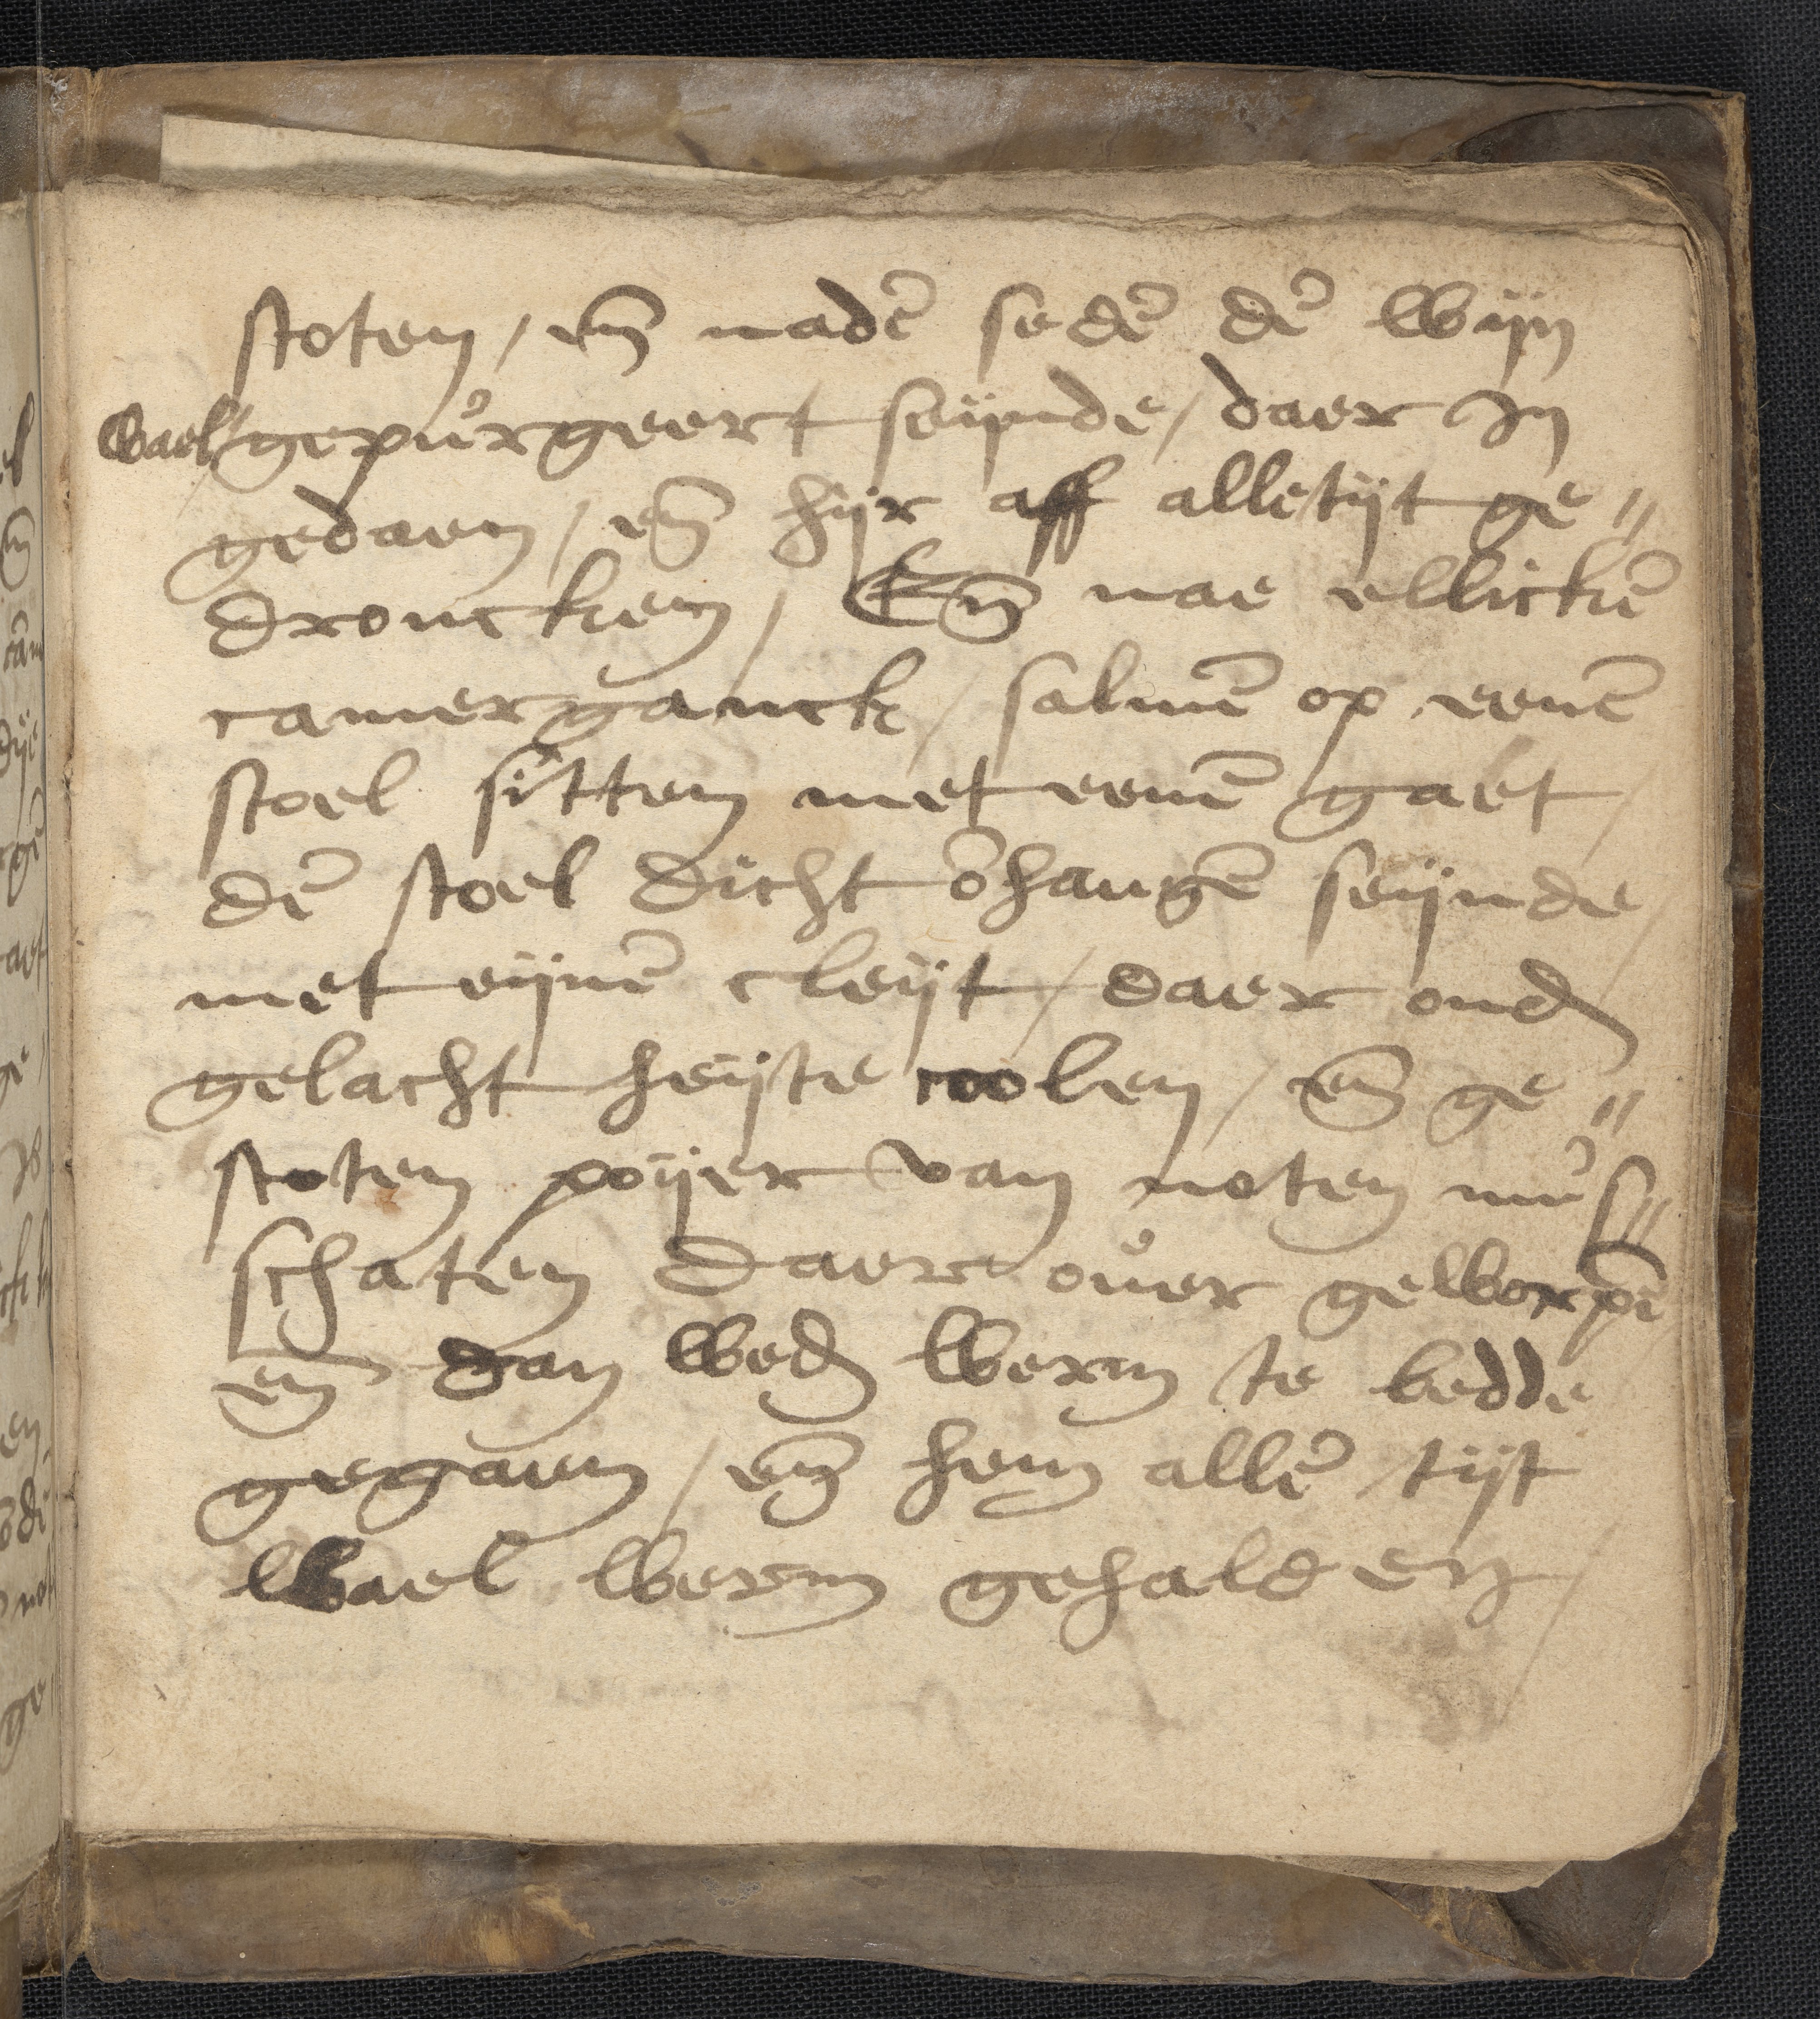 stoten / en̄ nadē sedē dē wijn
wael gepůrgeert seijnde / daer In
gedaen / en̄ hijr aff alletijt ge〃
droncken / En̄ nae ellickē
camerganck / salmē op eenē
stoel sitten met eenē gaet /
dē stoel dicht ōhangē seijnde /
met eijnē cleijt / daer ond
gelacht heijte coolen / en̄ ge〃
stoten poijer van noten můs〃
schaten daer oůer geworpē
en̄ dan wed werm te bedde
gegaen / en̄ hem allē tijt
wael werm gehalden /